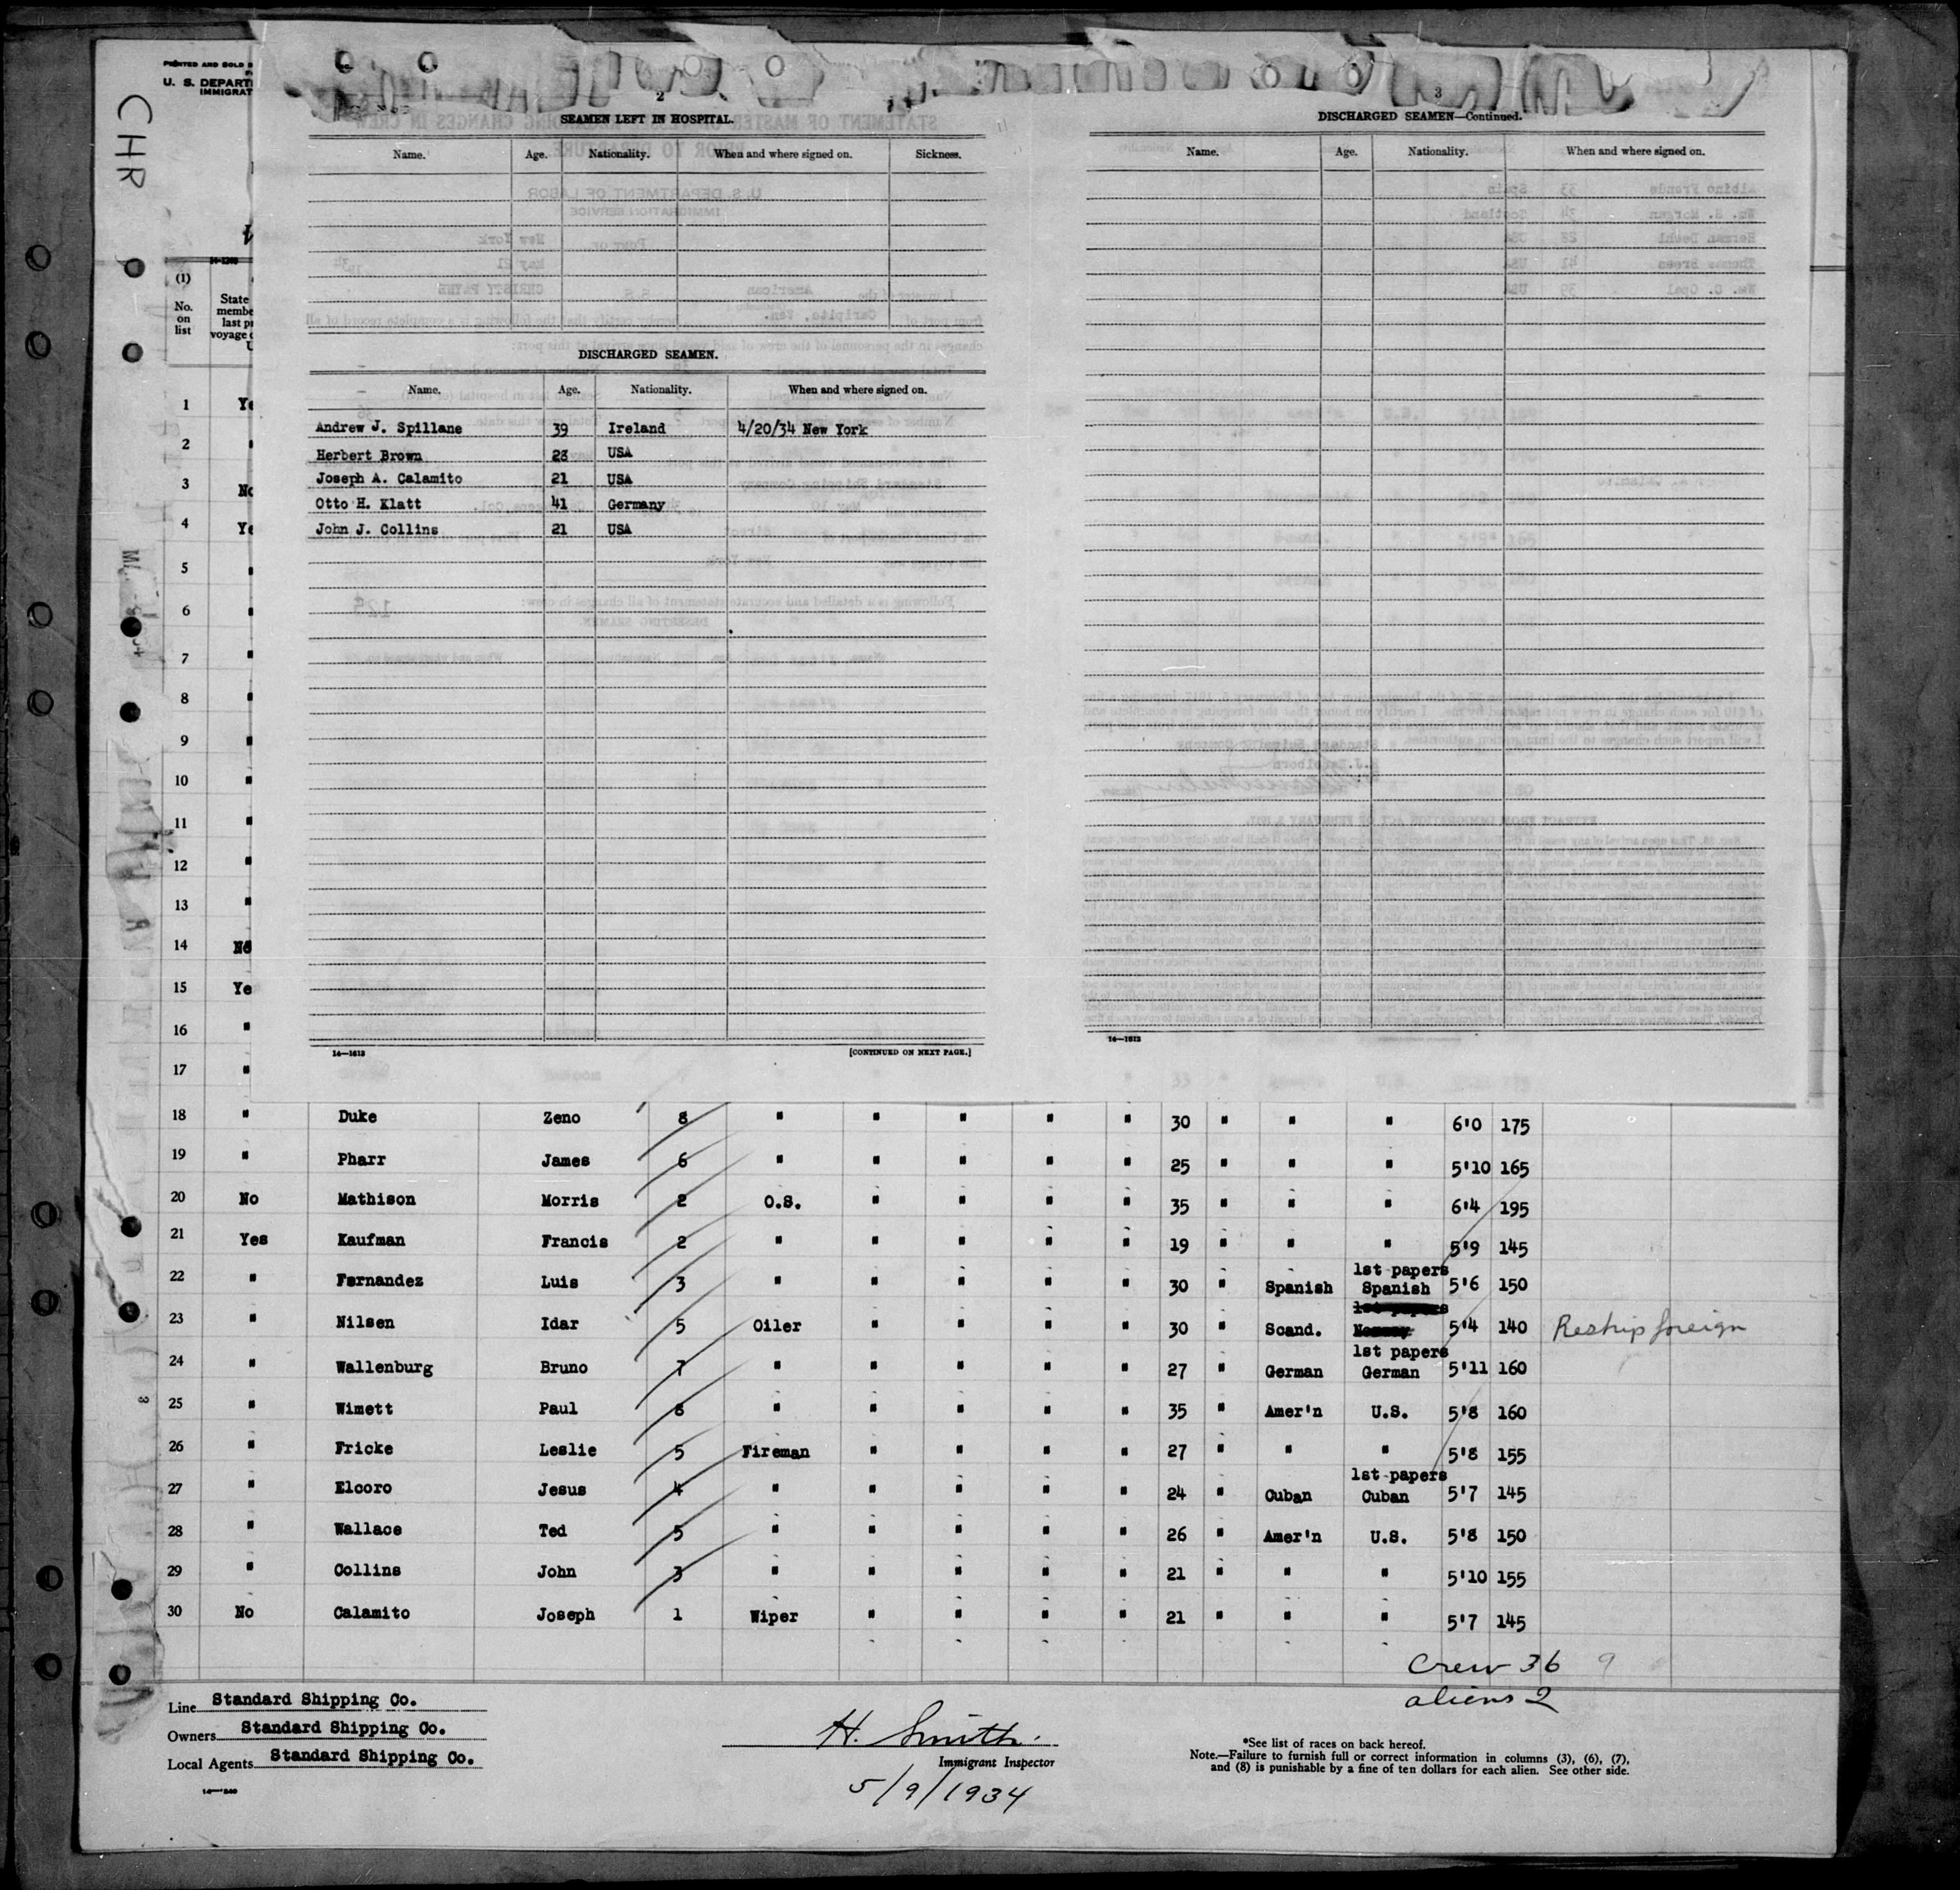 PRINTED AND SOLD
U. S. DEPART
IMMIGRAT
CHR
2
SEAMEN LEFT IN HOSPITAL.
Name. Age. Nationality. When and where signed on. Sickness.
DISCHARGED SEAMEN.
Name. Age. Nationality. When and where signed on.
Andrew J. Spillane 39 Ireland 4/20/34 New York
Herbert Brown 23 USA
Joseph A. Calamito 21 USA
Otto H. Klatt 41 Germany
John J. Collins 21 USA
14—1613 [CONTINUED ON NEXT PAGE.]
3
DISCHARGED SEAMEN—Continued.
Name. Age. Nationality. When and where signed on.
14—1613
(1)
No.
on
list
State
membe
last p
voyage
1 Ye
2 "
3 No
4 Ye
5 "
6 "
7 "
8 "
9 "
10 "
11 "
12 "
13 "
14 No
15 Ye
16 "
17 "
18 " Duke Zeno 8 " " " " " 30 " " " 6'0 175
19 " Pharr James 6 " " " " " 25 " " " 5'10 165
20 No Mathison Morris 2 O.S. " " " " 35 " " " 6'4 195
21 Yes Kaufman Francis 2 " " " " " 19 " " " 5'9 145
22 " Fernandez Luis 3 " " " " " 30 " Spanish 1st papers Spanish 5'6 150
23 " Nilsen Idar 5 Oiler " " " " 30 " Scand. 1st papers Norway 5'4 140 Reship foreign
24 " Wallenburg Bruno 7 " " " " " 27 " German 1st papers German 5'11 160
25 " Wimett Paul 8 " " " " " 35 " Amer'n U.S. 5'8 160
26 " Fricke Leslie 5 Fireman " " " " 27 " " " 5'8 155
27 " Elcoro Jesus 4 " " " " " 24 " Cuban 1st papers Cuban 5'7 145
28 " Wallace Ted 5 " " " " " 26 " Amer'n U.S. 5'8 150
29 " Collins John 3 " " " " " 21 " " " 5'10 155
30 No Calamito Joseph 1 Wiper " " " " 21 " " " 5'7 145
Crew 36 9
aliens 2
Line Standard Shipping Co.
Owners Standard Shipping Co.
Local Agents Standard Shipping Co.
14—840
H. Smith.
Immigrant Inspector
5/9/1934
*See list of races on back hereof.
Note.—Failure to furnish full or correct information in columns (3), (6), (7),
and (8) is punishable by a fine of ten dollars for each alien. See other side.